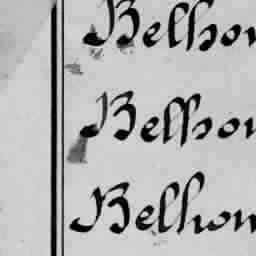 Belhom
Belhom
Belhom